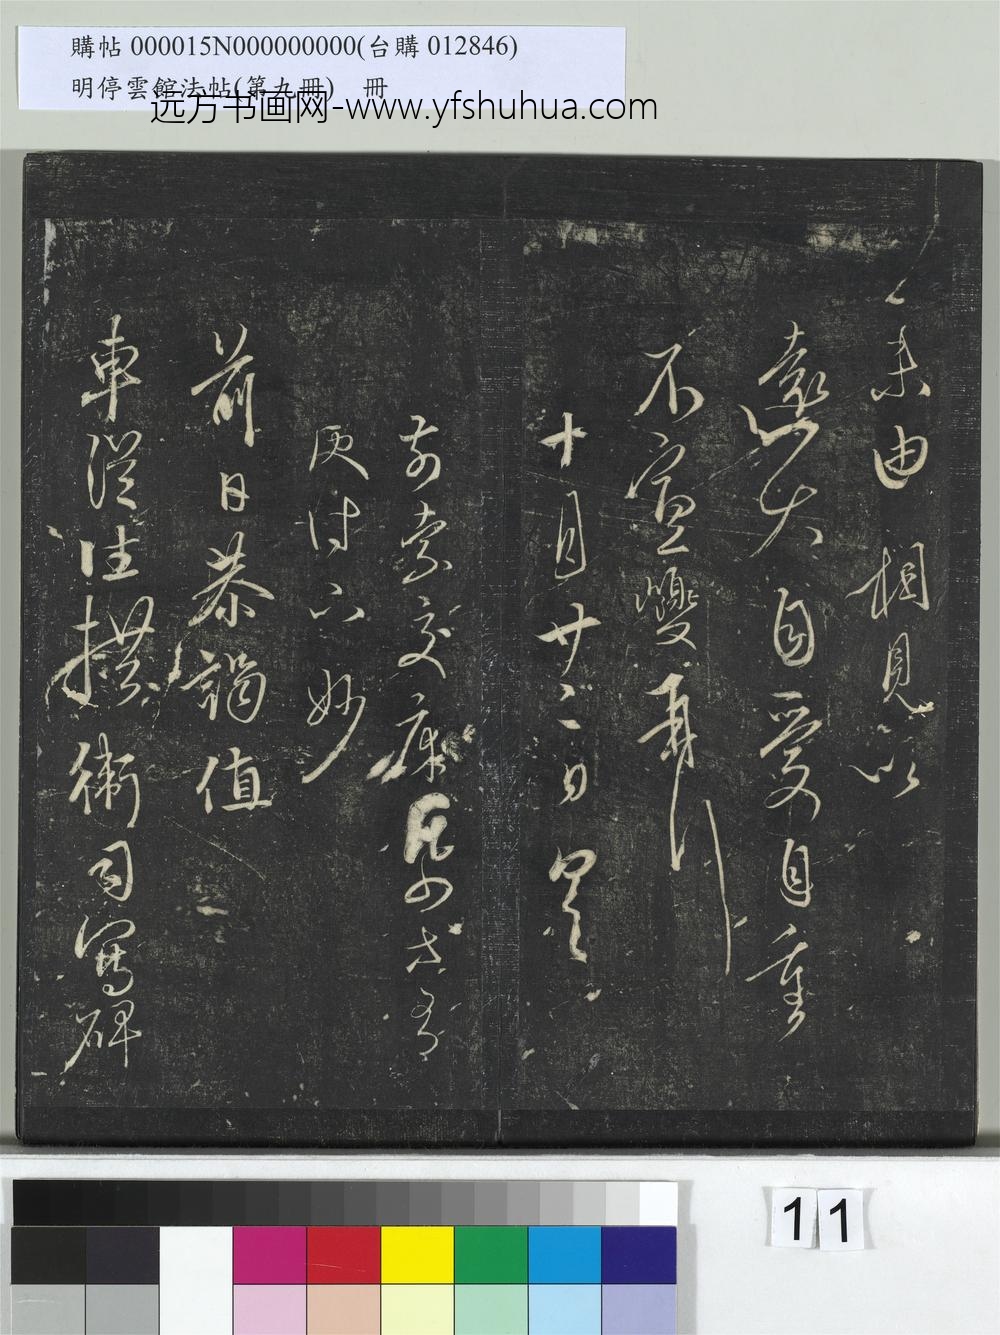 購帖 000015N000000000(台購 012846)
明停雲館法帖(第九冊) 冊
远方书画网-www.yfshuhua.com
未由相見以
遠大自愛自重
不宣夔再行
十月廿二日
前索文康
便付下妙
前日恭謁值
車從往撫術司寫碑
11